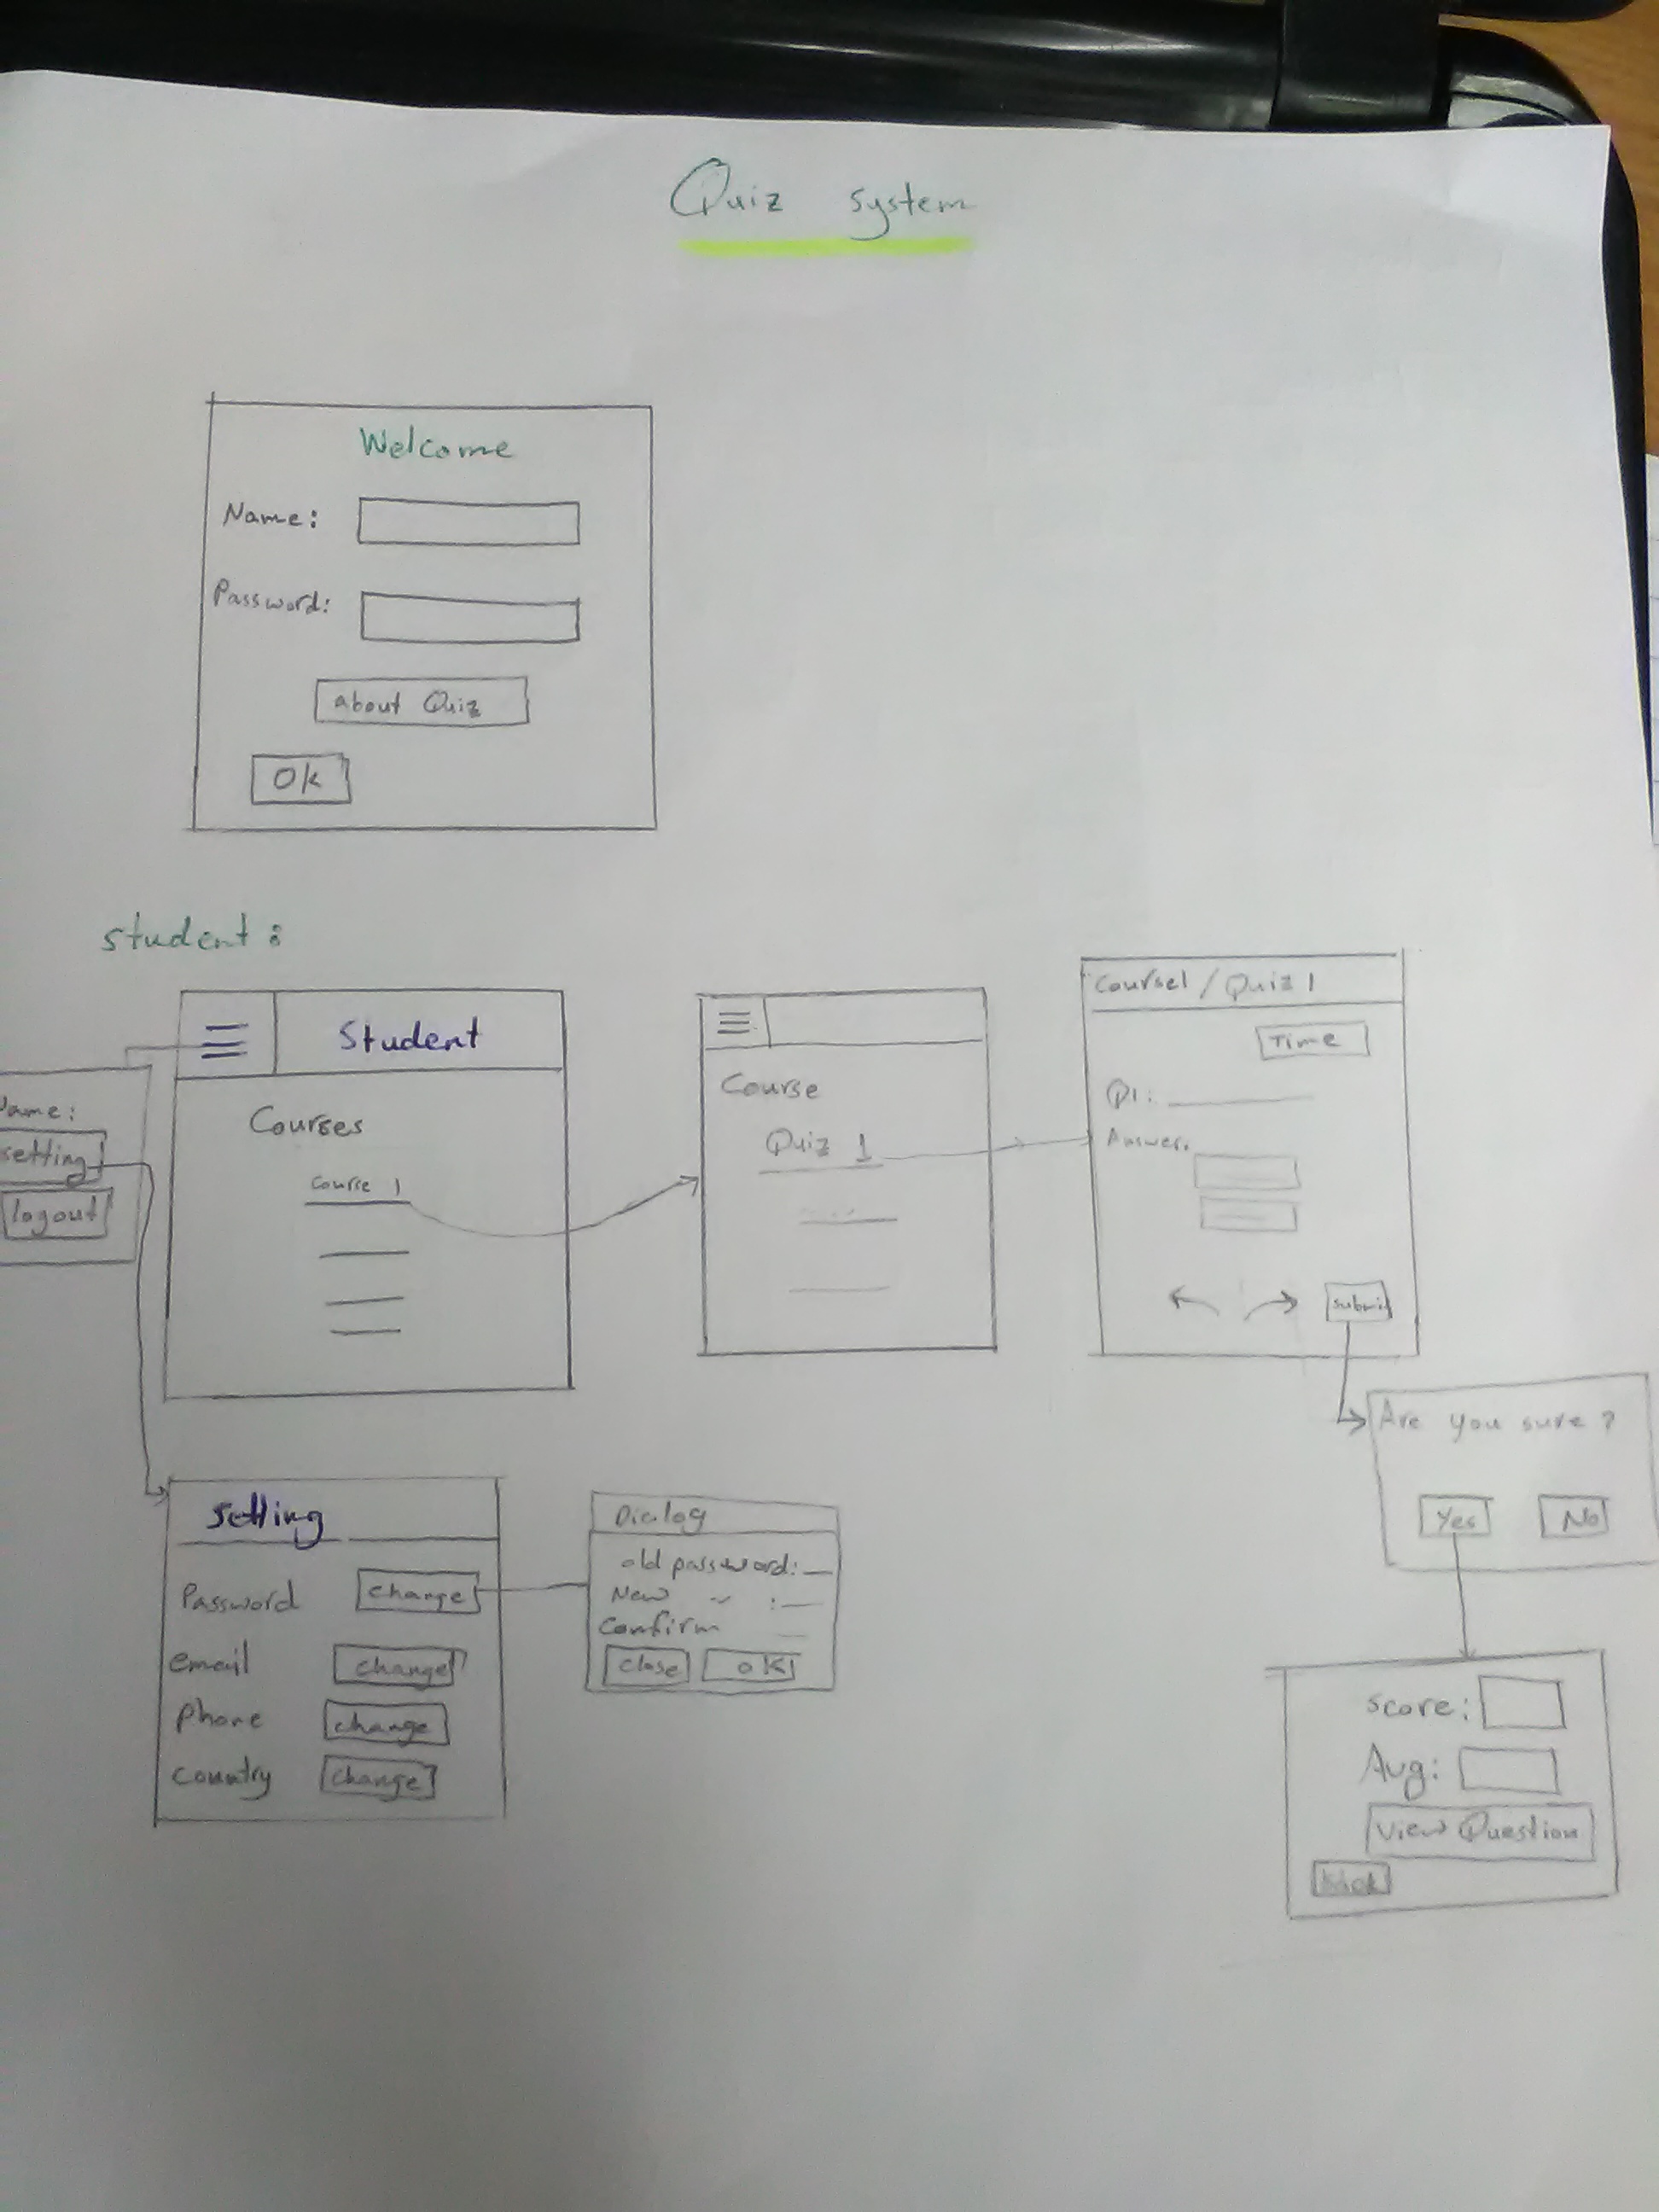 Quiz system
Welcome
Name:
Password:
about Quiz
Ok
student:
Student
Courses
Course 1
Name:
setting
logout
Course
Quiz 1
Course1 / Quiz 1
Time
Q1:
Answer:
submit
Are you sure?
Yes No
score:
Avg:
View Question
back
Setting
Password change
email change
phone change
country change
Dialog
old password:
New " :
Confirm
close oK